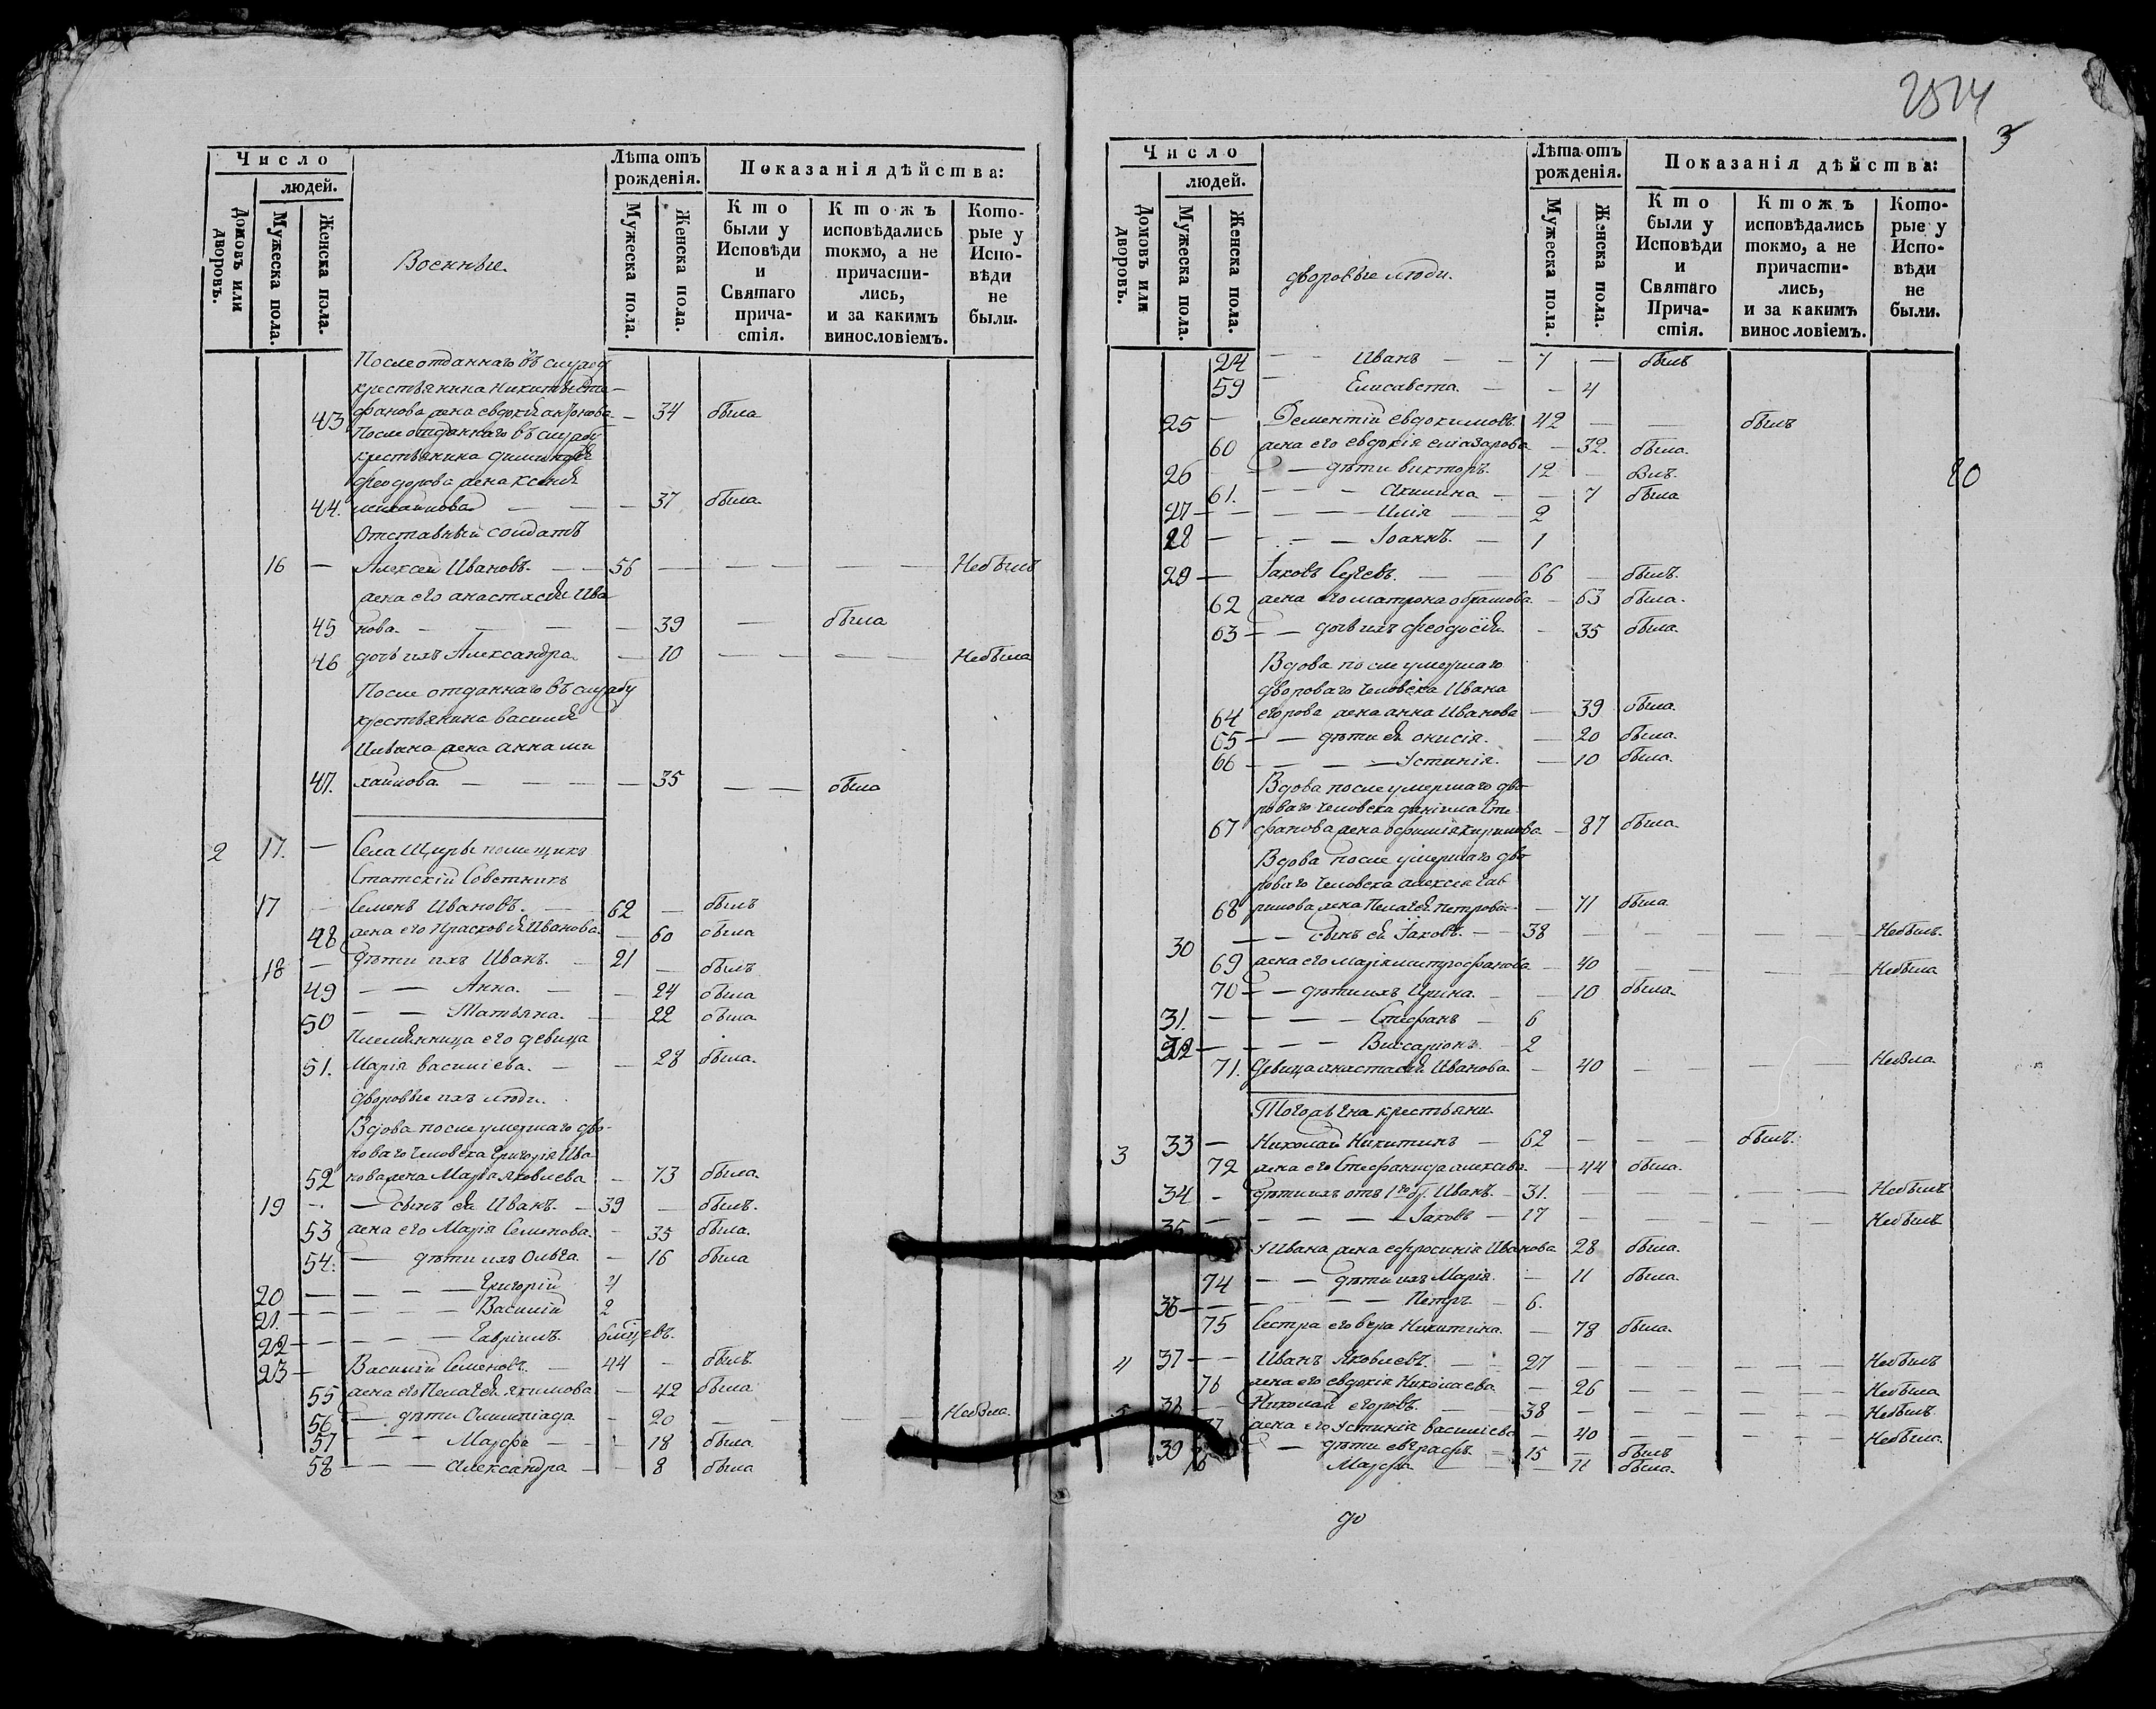 2574
3
Число
людей.
Домовъ или дворовъ.
Мужеска пола.
Женска пола.
Военные.
Лѣта отъ рожденія.
Мужеска пола.
Женска пола.
Показанія дѣйства:
Кто были у Исповѣди и Святаго причастія.
Ктожъ исповѣдались токмо, а не причастились, и за какимъ винословіемъ.
Которые у Исповѣди не были.
После отданнаго въ службу
крестьянина Никиты Сте-
43 фанова жена евдокія антонова — 34 была
После отданнаго въ службу
крестьянина
феодорова жена Ксенія
44. михаилова — — — 37 была
Отставный солдатъ
16 — Алексей Ивановъ. — — 56 — — — — — Небылъ
жена его анастасія Ива
45 нова. — — — — 39 — была
46 дочь ихъ Александра — 10 — — — — Небыла
После отданнаго въ службу
крестьянина василія
Ильина жена анна ми
47. хаилова — — — — 35 — — была
2 17. — Села Щигры помещикъ
Статскій Советникъ
17 — Семенъ Ивановъ. — 62 — былъ
48 жена его Прасковія Иванова — 60 была
18 — дѣти ихъ Иванъ. — 21 — былъ
49 — — Анна. — — 24 была
50 — — Татьяна. — 22 была
Племянница его девица
51. Марія василіева. — — 28 была.
дворовые ихъ люди.
Вдова после умершаго дво-
роваго человека Григорія Ива
52 нова жена Марѳа яковлева — 73 была.
19 — — сынъ ея Иванъ. — 39 — былъ.
53 жена его Марія Семенова. — 35 была.
54. — дѣти ихъ Ольга. — 16 была
20 — — — — Григорій 4
21. — — — — Василій 2
22 — — — — Гавріилъ. 6 месяцевъ.
23 — Василій Семеновъ. — 44 — былъ.
55 жена его Пелагея якимова — 42 была
56 — дѣти Олимпіада — 20 — — — Небыла.
57 — — Марфа — — 18 была
58 — — — александра — — 8 была
Число
людей.
Домовъ или дворовъ.
Мужеска пола.
Женска пола.
дворовые люди.
Лѣта отъ рожденія.
Мужеска пола.
Женска пола.
Показанія дѣйства:
Кто были у Исповѣди и Святаго Причастія.
Ктожъ исповѣдались токмо, а не причастились, и за какимъ винословіемъ.
Которые у Исповѣди не были.
24 — — Иванъ — — 7 — былъ
59 — Елисавета. — — 4
25 — Дементій евдокимовъ. 42 — — былъ
60 жена его евдокія еліазарова — 32. была.
26 — — — дѣти викторъ. 12 — былъ.
80
61. — — — Акилина — — 7 была
27 — — — — — Илія — — 2
28 — — — — Іоаннъ. — 1
29 — Іаковъ — — 66 — былъ.
62 жена его матрона абрамова — 63 была.
63 — — дочь ихъ феодосія — 35 была.
Вдова после умершаго
двороваго человека Ивана
64 егорова жена анна Иванова — 39 была.
65 — — дѣти ея — 20 была.
66 — — — — Устинія. — 10 была.
Вдова после умершаго дво-
роваго человека даніила Сте-
67 фанова жена кирилова — 87 была.
Вдова после умершаго дво
роваго человека алексея Гав
68 рилова жена Пелагея петрова — 71 была
30 — — сынъ ея Іаковъ. — — 38 — — — — Небылъ.
69 жена его Марія митрофанова — 40 — — — Небыла
70 — — дѣти ихъ Ирина. — — 10 была.
31. — — — — Стефанъ — 6
32 — — — — Виссаріонъ. — 2
71. девица анастасія Иванова — 40 — — — — Небыла
Тогожъ села крестьяни
3 33 — Николай Никитинъ — 62 — — — былъ.
72 жена его Стефанида алексева — 44 была.
34 — дѣти ихъ отъ 1го бр. Иванъ. — 31. — — — — Небылъ
35 — — — — — Іаковъ — 17 — — — — Небылъ
у Ивана жена ефросинія Иванова 28 была.
74 — — дѣти ихъ Марія. — 11 была.
36 — — — — — Петръ — 6.
75 Сестра его вѣра Никитина. — 78 была.
4 37 — — Иванъ Яковлевъ. — — 27 — — — — — Небылъ
76 жена его евдокія Николаева — 26 — — — — Небыла
5 38 — Николай егоровъ. — — 38 — — — — Небылъ
77 жена его Устинія василіева — 40 — — — — Небыла.
39 — — дѣти евграфъ. — 15 — былъ
78 Марфа — — — 11 была.
до